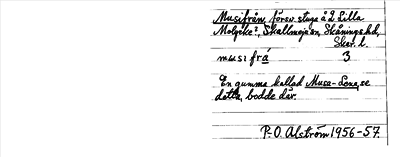 Musifrån, försv. stuga å 2 Lilla
Molycke?, Skallmeja sn, Skånings hd,
Skar. l.
musifrá 3
En gumma kallad Musa-Lena, se
detta, bodde där.
P-O. Alström 1956-57